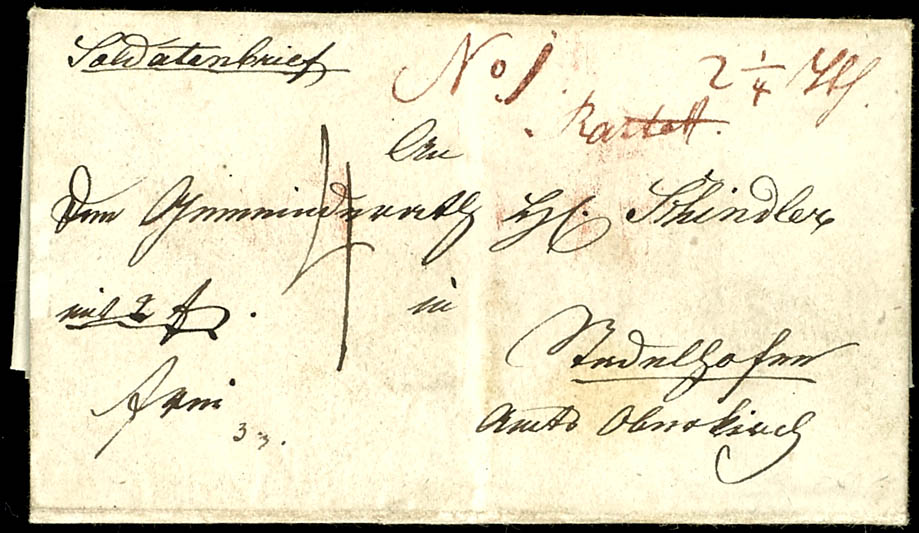 Soldatenbrief
No 1
2 1/4 Lth
Rastatt.
An
Den Gemeinderath H. Schindler
mit 2 f.
in
Stadelhofen
frei
Amts Oberkirch
4
33.